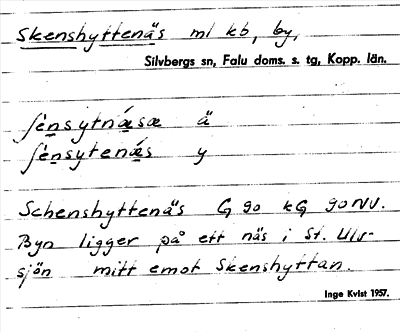 Skenshyttenäs ml kb, by,
Silvbergs sn, Falu doms. s. tg, Kopp. län.
ʃènsytnǽsæ ä
ʃènsytenǽs y
Schenshyttenäs G 90 kG 90NV.
Byn ligger på ett näs i St. Ulv-
sjön mitt emot Skenshyttan.
Inge Kvist 1957.